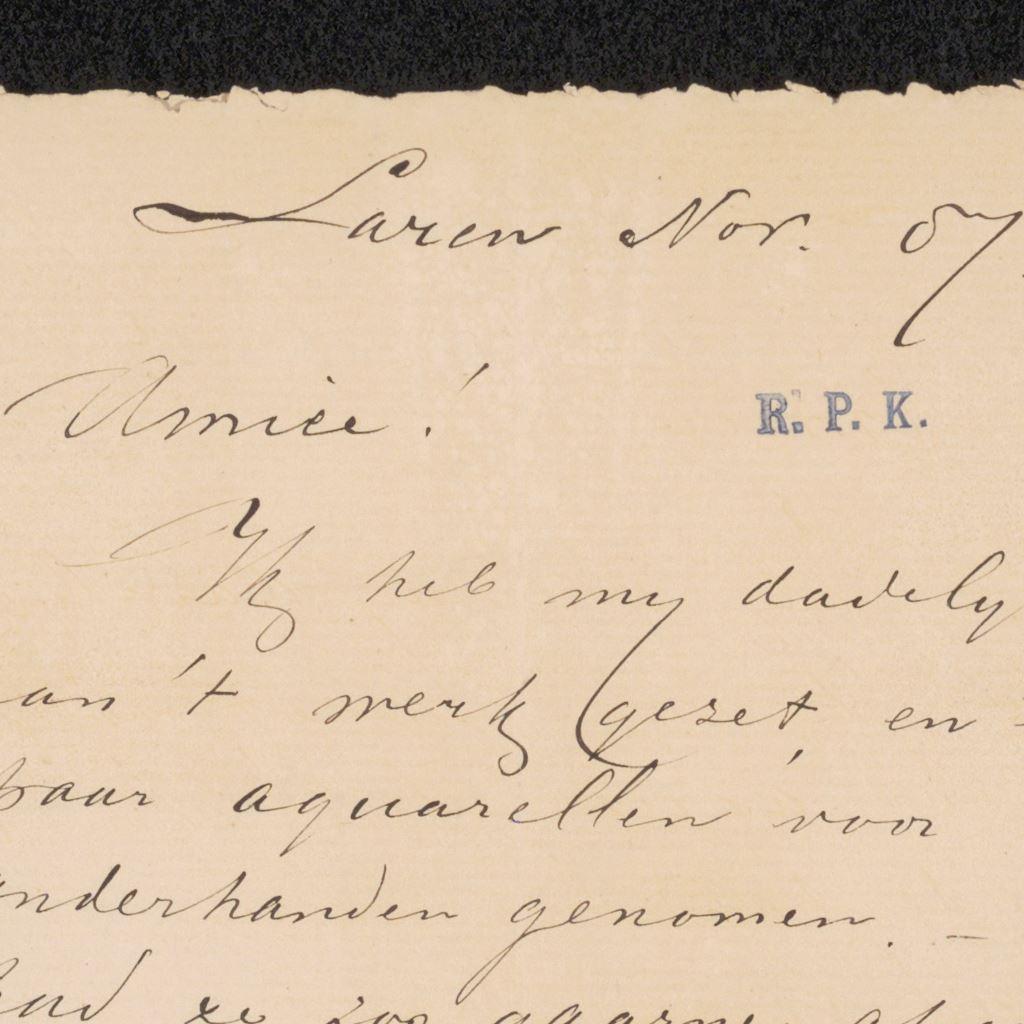 Laren Nov. 07.
Amice!
R. P. K.
Ik heb my dadely
aan 't werk gezet, en
paar aquarellen voor
onderhanden genomen. -
had ze zoo gaarne